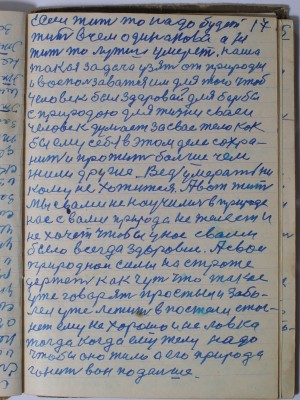 если жит то надо будет 17
жит всем одинакова а не
жит то лутше умерет, наша
такая задача узят от природы
и воспользаватся им для того чтоб
человек был здоровай для борбы
с природою для жизни своей
человек думает за свае тело как
бы ему себя в этом деле сохра-
нит и прожит болше чем
жили другия. Вед умерат ни
кому не хочится. А вот жит
мы с вами не научились в природе
нас с вами природа не жалеет и
не хочет чтобы у нас с вами
было всегда здоровие. А свои
природнои силы на строже
держат как чут что такае
уже говарят простыл и забо-
лел уже лежиш в постели стог-
нет ему не хорошо и не ловка
тогда когда ему телу надо
чтобы оно жило а его природа
гонит вон подалше.